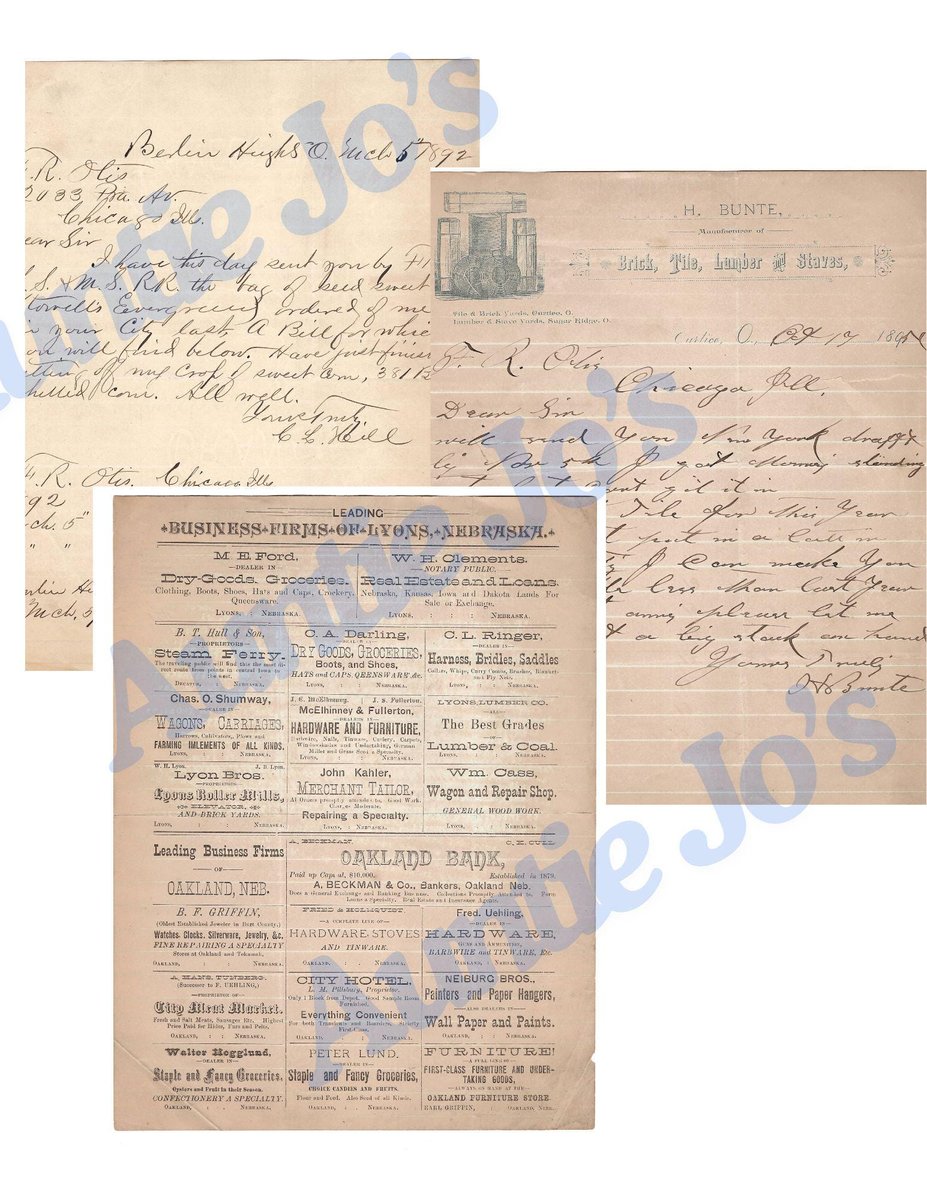 Berlin Heights O. Mch 5" 1892
F.R. Otis
2033 Av.
Chicago Ills.
Dear Sir
I have this day sent you by
S. & M. S. R.R. the bag of seed sweet
Stowell's Evergreen ordered of me
in your City last A Bill for which
you will find below. Have just
of my crop of sweet corn, 381
shelled corn. All well.
Yours Truly
C L Hill
F.R. Otis. Chicago Ills
892
Mch. 5"
" "
Mch, 5
H. BUNTE,
Manufacturer of
Brick, Tile, Lumber and Staves,
Tile & Brick Yards, Curtice, O.
Lumber & Stave Yards, Sugar Ridge, O.
Curtice, O., Oct 17 189
F. R. Otis
Chicago Ill,
Dear Sir
will send you New York draft
by Nov 5th I got money standing
out but git it in
Tile for this Year
put in a
I can make you
less than last year
please let me
a big stock on hand
Yours Truly
H Bunte
LEADING
BUSINESS FIRMS OF LYONS, NEBRASKA.
M. E. Ford,
—DEALER IN—
Dry-Goods, Groceries.
Clothing, Boots, Shoes, Hats and Caps, Crockery,
Queensware.
LYONS, : : NEBRASKA.
W. H. Clements.
—NOTARY PUBLIC.—
Real Estate and Loans.
Nebraska, Kansas, Iowa and Dakota Lands For
Sale or Exchange.
LYONS. : : NEBRASKA.
B. T. Hull & Son,
—PROPRIETORS—
Steam Ferry.
The traveling public will find this the most di-
rect route from points in central Iowa to
the west.
DECATUR, : : NEBRASKA.
C. A. Darling,
—DEALER IN—
DRY GOODS, GROCERIES,
Boots, and Shoes,
HATS and CAPS, QEENSWARE &c.
LYONS, : : NEBRASKA.
C. L. Ringer,
—DEALER IN—
Harness, Bridles, Saddles
Collars, Whips, Curry Combs, Brushes, Blankets
and Fly Nets.
LYONS, : : NEBRASKA.
Chas. O. Shumway,
—DEALER IN—
WAGONS, CARRIAGES,
Harrows, Cultivators, Plows and
FARMING IMLEMENTS OF ALL KINDS.
LYONS, : : NEBRASKA.
J. C. McElhinney. J. S. Fullerton.
McElhinney & Fullerton,
—DEALERS IN—
HARDWARE AND FURNITURE,
Barbwire, Nails, Tinware, Cutlery, Carpets,
Windowshades and Undertaking, German
Millet and Grass Seed a Specialty.
LYONS, : : NEBRASKA.
LYONS, LUMBER CO.
—ALL—
The Best Grades
—OF—
Lumber & Coal.
LYONS, : : NEBRASKA.
W. H. Lyon. J. B. Lyon.
Lyon Bros.
—PROPRIETORS—
Lyons Roller Mills,
ELEVATOR,
AND BRICK YARDS.
LYONS, : : NEBRASKA.
John Kahler,
MERCHANT TAILOR,
All Orders promptly attended to. Good Work.
Charges Moderate.
Repairing a Specialty.
LYONS, : : NEBRASKA.
Wm. Cass,
Wagon and Repair Shop.
GENERAL WOOD WORK.
LYONS, : : NEBRASKA.
Leading Business Firms
—OF—
OAKLAND, NEB.
A. BECKMAN. C. E. CULL
OAKLAND BANK,
Paid up Cap. at, $10,000. Established in 1879.
A. BECKMAN & Co., Bankers, Oakland Neb.
Does a General Exchange and Banking Business. Collections Promptly Attended to. Farm
Loans a Specialty. Real Estate and Insurance Agents.
B. F. GRIFFIN,
(Oldest Established Jeweler in Burt County,)
Watches, Clocks, Silverware, Jewelry, &c.
FINE REPAIRING A SPECIALTY
Stores at Oakland and Tekamah.
OAKLAND, : : NEBRASKA.
FRIED & HOLMQUIST,
—A COMPLETE LINE OF—
HARDWARE, STOVES
AND TINWARE.
OAKLAND, : : NEBRASKA.
Fred. Uehling,
—DEALER IN—
HARDWARE,
GUNS AND AMMUNITION,
BARBWIRE and TINWARE, Etc.
OAKLAND, : : NEBRASKA.
A. HANS. TUNBERG.
(Successor to F. UEHLING,)
—PROPRIETOR OF—
City Meat Market.
Fresh and Salt Meats, Sausages Etc. Highest
Price Paid for Hides, Furs and Pelts,
OAKLAND, : : NEBRASKA.
CITY HOTEL,
L. M. Pillsbury, Proprietor.
Only 1 Block from Depot. Good Sample Room
Furnished.
Everything Convenient
For both Transients and Boarders, Strictly
First-Class.
OAKLAND, : : NEBRASKA.
NEIBURG BROS.,
Painters and Paper Hangers,
—ALSO DEALERS IN—
Wall Paper and Paints.
OAKLAND, : : NEBRASKA.
Walter Hogglund,
—DEALER IN—
Staple and Fancy Groceries.
Oysters and Fruit in their Season.
CONFECTIONERY A SPECIALTY.
OAKLAND, : : NEBRASKA.
PETER LUND.
—DEALER IN—
Staple and Fancy Groceries,
CHOICE CANDIES AND FRUITS.
Flour and Feed. Also Seed of all Kinds.
OAKLAND, : : NEBRASKA.
FURNITURE!
—A FULL LINE OF—
FIRST-CLASS FURNITURE AND UNDER-
TAKING GOODS,
—ALWAYS ON HAND AT THE—
OAKLAND FURNITURE STORE.
EARL GRIFFIN, : OAKLAND, NEB.
Auntie Jo's
Auntie Jo's
Auntie Jo's